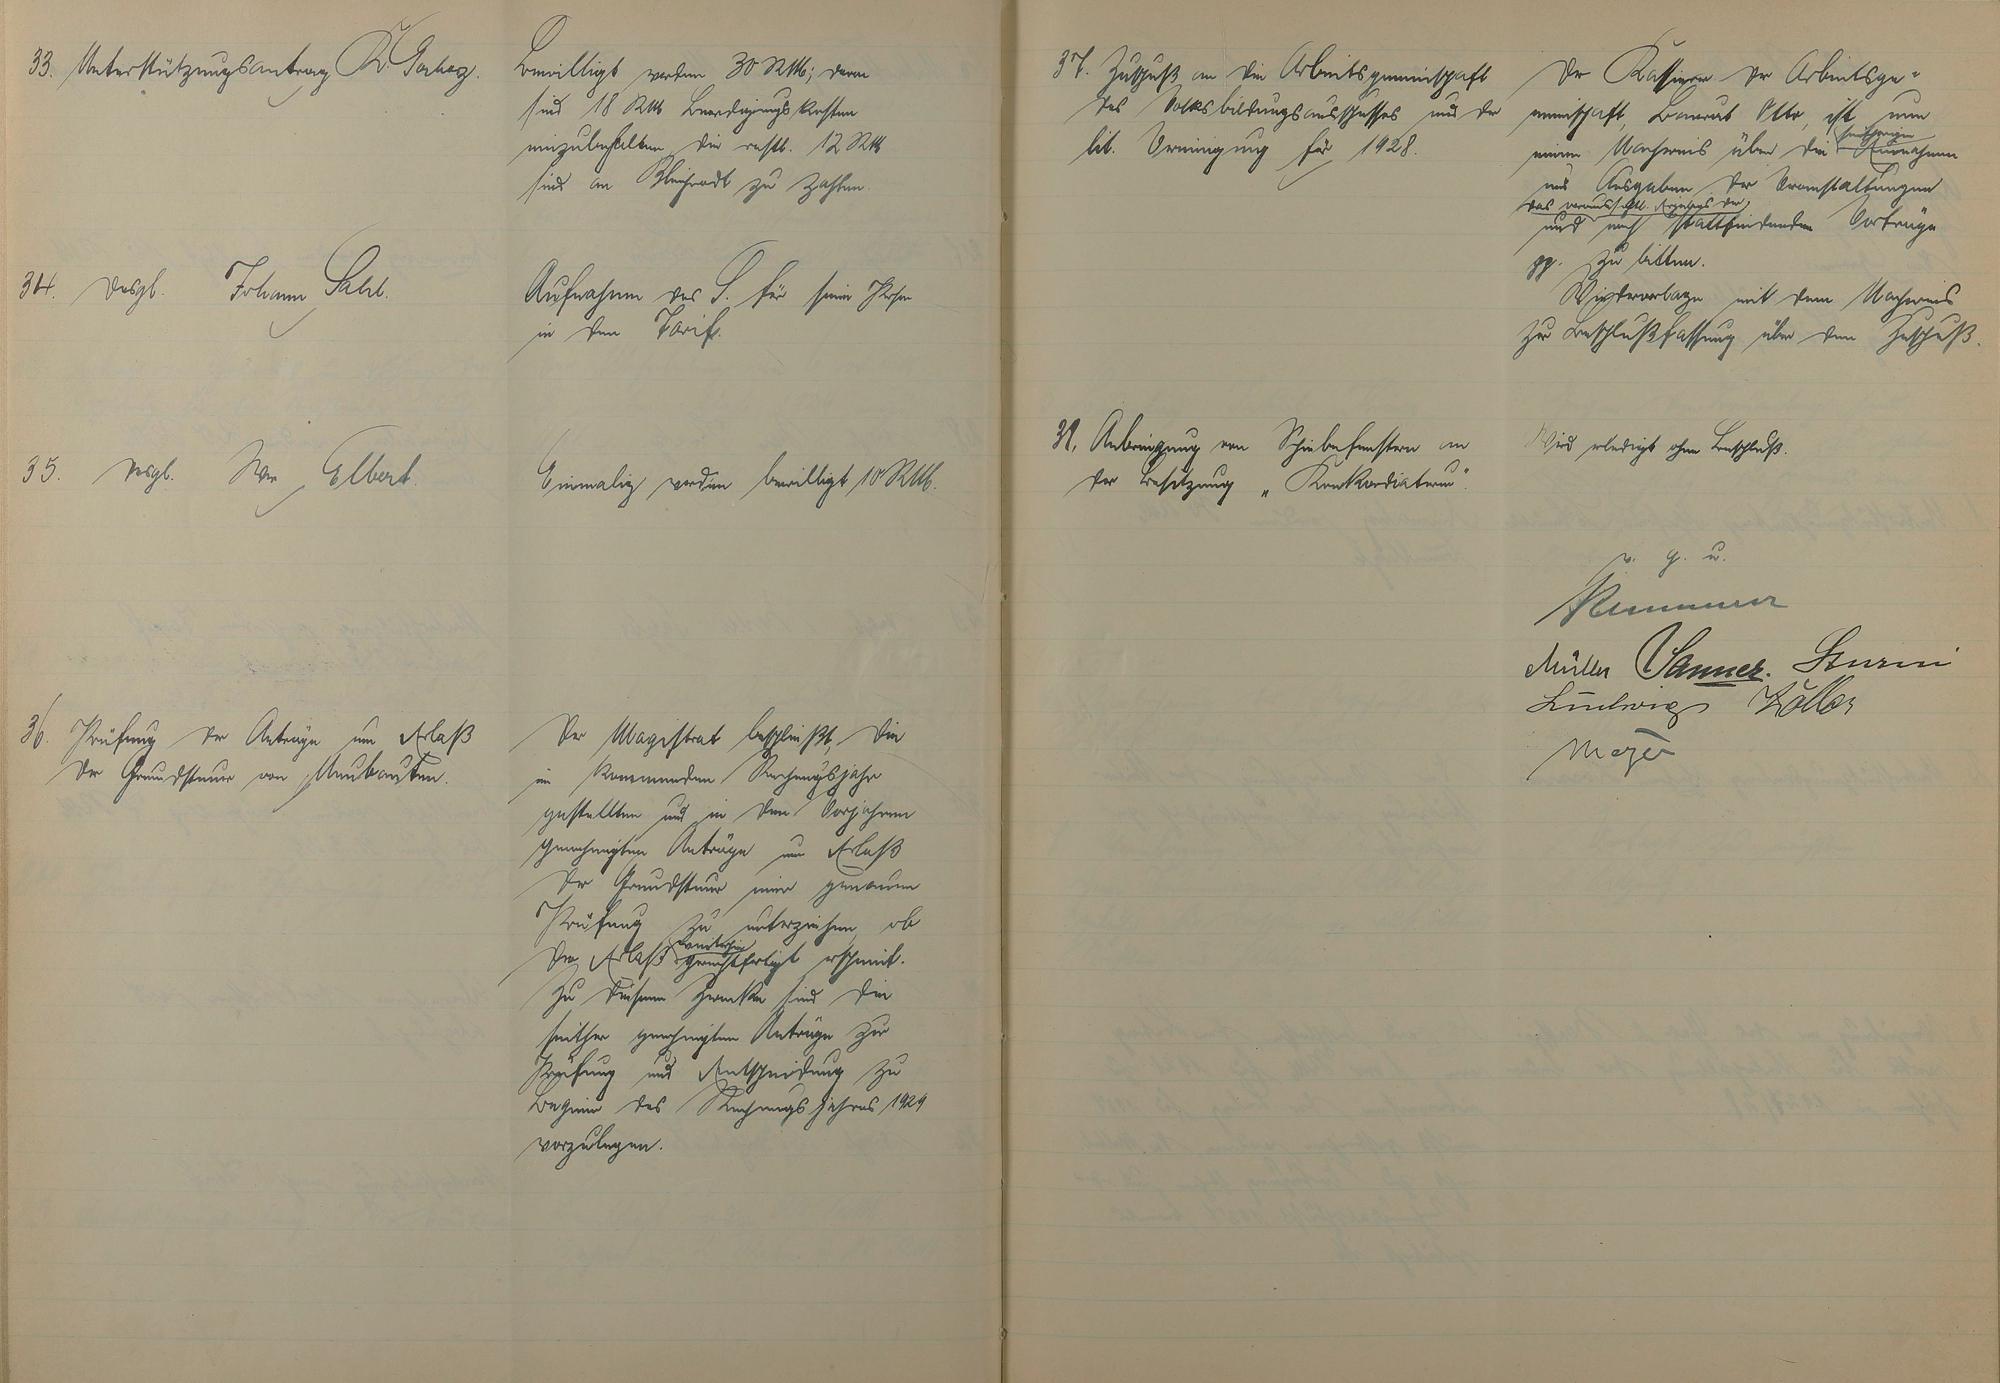 33. Unterstützungsantrag K. Gorhag.
Bewilligt werden 30 RM; davon
sind 18 RM Beerdigungskosten
einzubehalten, die restl. 12 RM
sind an zu zahlen.
34. desgl. Johann Sahl.
Aufnahme des S. für seine Person
in den Tarif.
35. desgl. Ww Elbert.
Einmalig werden bewilligt 10 RM.
36. Prüfung der Anträge um Erlaß
der Grundsteuer von Neubauten.
Der Magistrat beschließt, die
im kommenden Rechnungsjahr
gestellten und in den Vorjahren
genehmigten Anträge um Erlaß
der Grundsteuer einer genauen
Prüfung zu unterziehen, ob
der Erlaß weiterhin gerechtfertigt erscheint.
Zu diesem Zwecke sind die
seither genehmigten Anträge zur
Prüfung und Entscheidung zu
Beginn des Rechnungsjahres 1929
vorzulegen.
37. Zuschuß an die Arbeitsgemeinschaft
des Volksbildungsausschusses und der
lit. Vereinigung für 1928.
Der Kassierer der Arbeitsge-
meinschaft, Baurat Otto, ist um
einen Nachweis über die seitherigen Einnahmen
und Ausgaben der Veranstaltungen
das voraussichtl. Ergebnis der
und noch stattfindenden Vorträge
pp. zu bitten.
Wiedervorlage mit dem Nachweis
zur Beschlußfassung über den Zuschuß.
38. Anbringung von Schiebefenstern an
der Besitzung „Konkordiaturm".
Wird erledigt ohne Beschluß.
v. g. u.
Müller Sanner. Sturm
Ludwig Zöller
Meyer